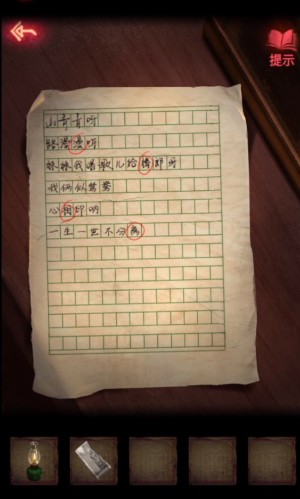 提示
山青青呀
路漫漫呀
妹妹我唱歌儿给情郎呀
我俩似鸳鸯
心相印呀
一生一世不分离